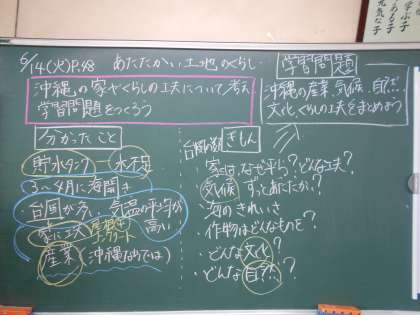 学ぶ子
ある子
元気な子
5/14(火)P.48 あたたかい土地のくらし
沖縄の家やくらしの工夫について考え
学習問題をつくろう
学習問題
沖縄の産業、気候、自然、
文化、くらしの工夫をまとめよう
分かったこと
貯水タンク―水不足
3〜4月に海開き
台風が多い 気温の平均が
高い
家に工夫
コンクリート
産業(沖縄ならでは)
ぎもん
台風の数
・家は、なぜ平ら?どんな工夫?
・気候 ずっとあたたか?
・海のきれいさ
・作物はどんなものを?
・どんな文化?
・どんな自然?